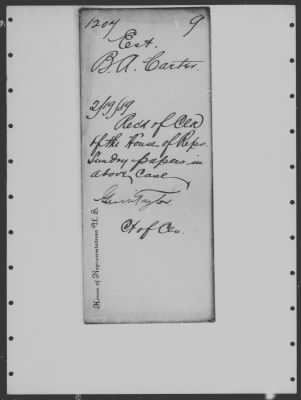 1207 9
Est.
B. A. Carter.
2/19/89
Recd of Clk
of the House of Reps.
Sundry papers in
above case
Taylor
Ct of Cls.
House of Representatives U. S.